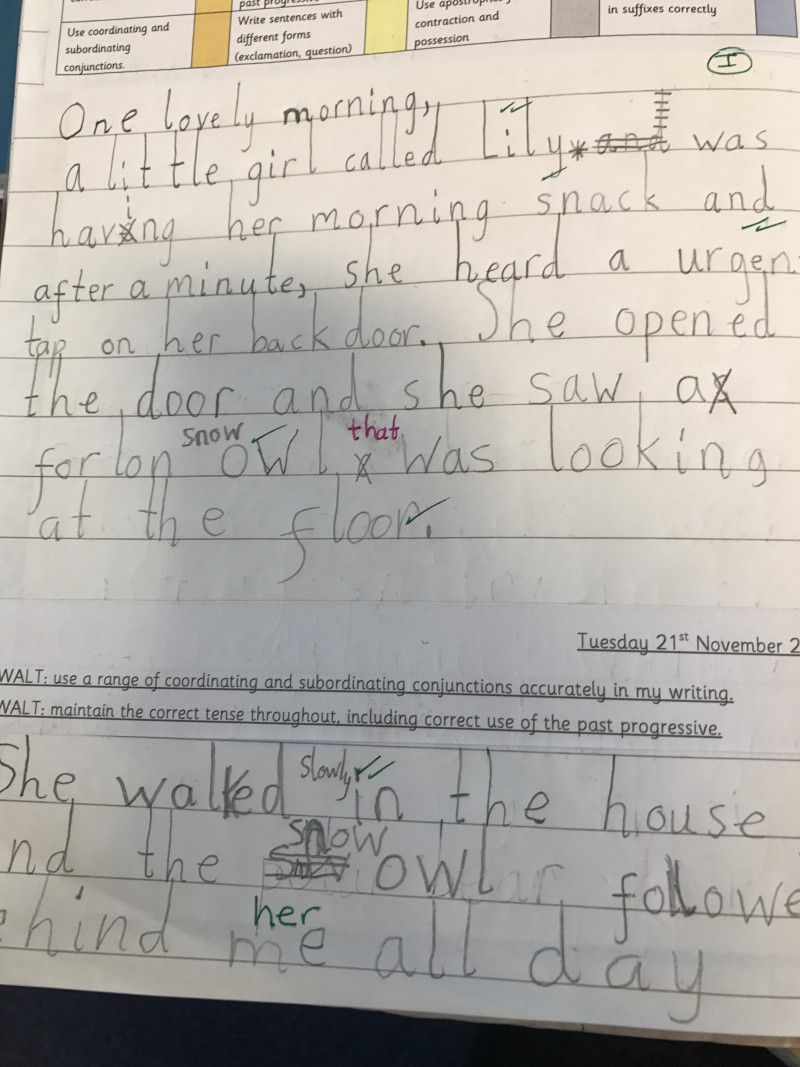 Use coordinating and subordinating conjunctions.
Write sentences with different forms (exclamation, question)
contraction and possession
in suffixes correctly
I
One lovely morning,
a little girl called Lily and was
having her morning snack and
after a minute, she heard a urgen
tap on her back door. She opened
the door and she saw a
forlon snow owl that was looking
at the floor.
Tuesday 21st November 2
WALT: use a range of coordinating and subordinating conjunctions accurately in my writing.
WALT: maintain the correct tense throughout, including correct use of the past progressive.
She walked slowly in the house
nd the snow owl followe
hind me her all day